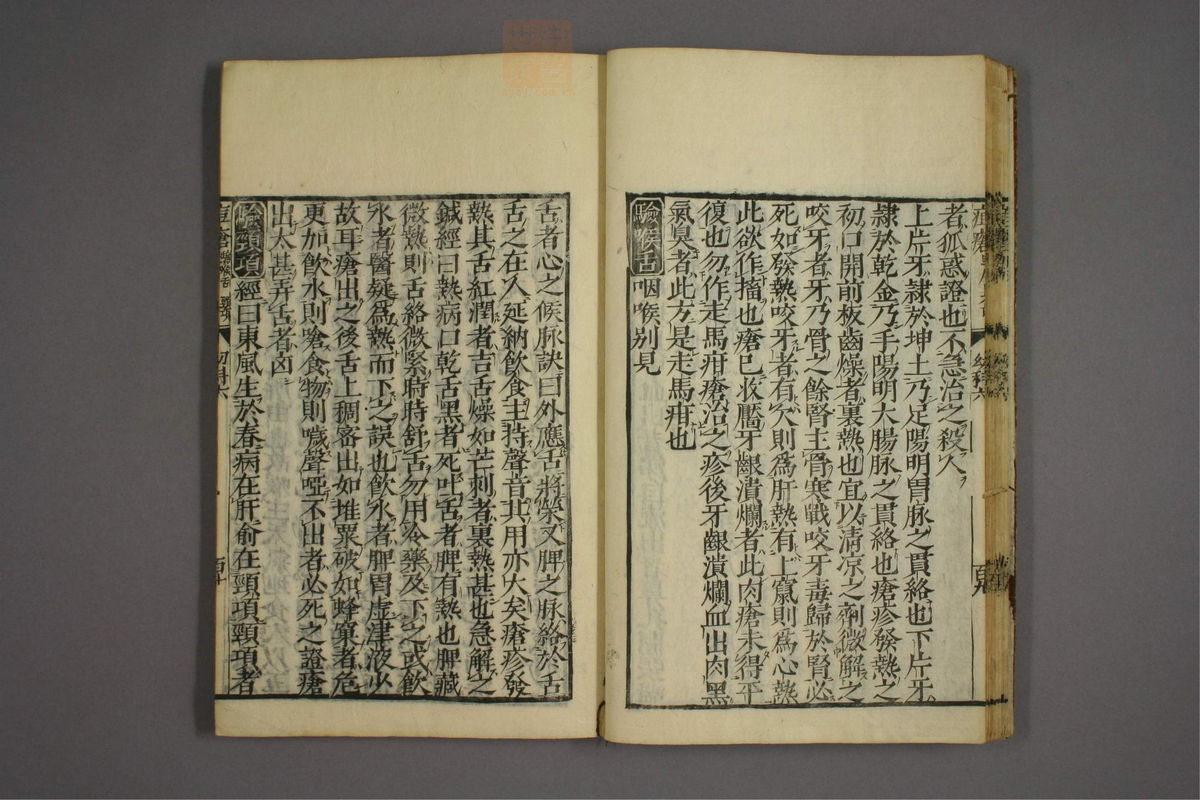 者狐惑證也不急治之殺人
上片牙隸於坤土乃足陽明胃脉之貫絡也下片牙
隸於乾金乃手陽明大腸脉之貫絡也瘡疹發熱之
初口開前板齒燥者裏熱也宜以清凉之劑微解之
咬牙者牙乃骨之餘腎主骨寒戰咬牙毒歸於腎必
死如發熱咬牙者有欠則爲肝熱有上竄則爲心熱
此欲作搐也瘡已收靨牙齦潰爛者此肉瘡未得平
復也勿作走馬疳瘡治之疹後牙齦潰爛血出肉黑
氣臭者此方是走馬疳也
驗喉舌 咽喉别見
舌者心之候脉訣曰外應舌將榮又脾之脉絡於舌
舌之在人延納飲食主持聲音其用亦大矣瘡疹發
熱其舌紅潤者吉舌燥如芒刺者裏熱甚也急解之
鍼經曰熱病口乾舌黑者死吐舌者脾有熱也脾藏
微熱則舌絡微緊時時舒舌勿用冷藥及下之或飲
水者醫疑爲熱而下之誤也飲水者脾胃虚津液少
故耳瘡出之後舌上稠密出如堆粟破如蜂窠者危
更加飲水則嗆食物則噦聲啞不出者必死之證瘡
出太甚弄舌者凶
驗頸項 經曰東風生於春病在肝俞在頸項頸項者